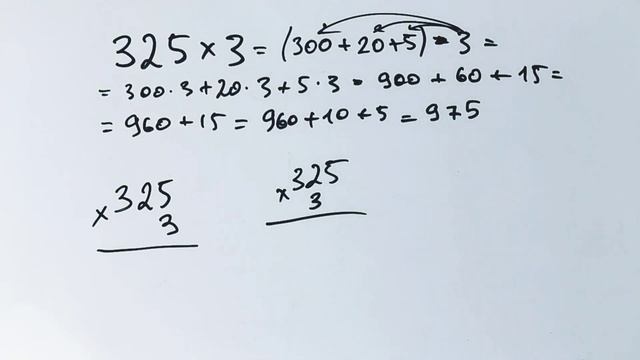 325 × 3 = (300 + 20 + 5) · 3 =
= 300 · 3 + 20 · 3 + 5 · 3 = 900 + 60 + 15 =
= 960 + 15 = 960 + 10 + 5 = 975
× 325
3
× 325
3